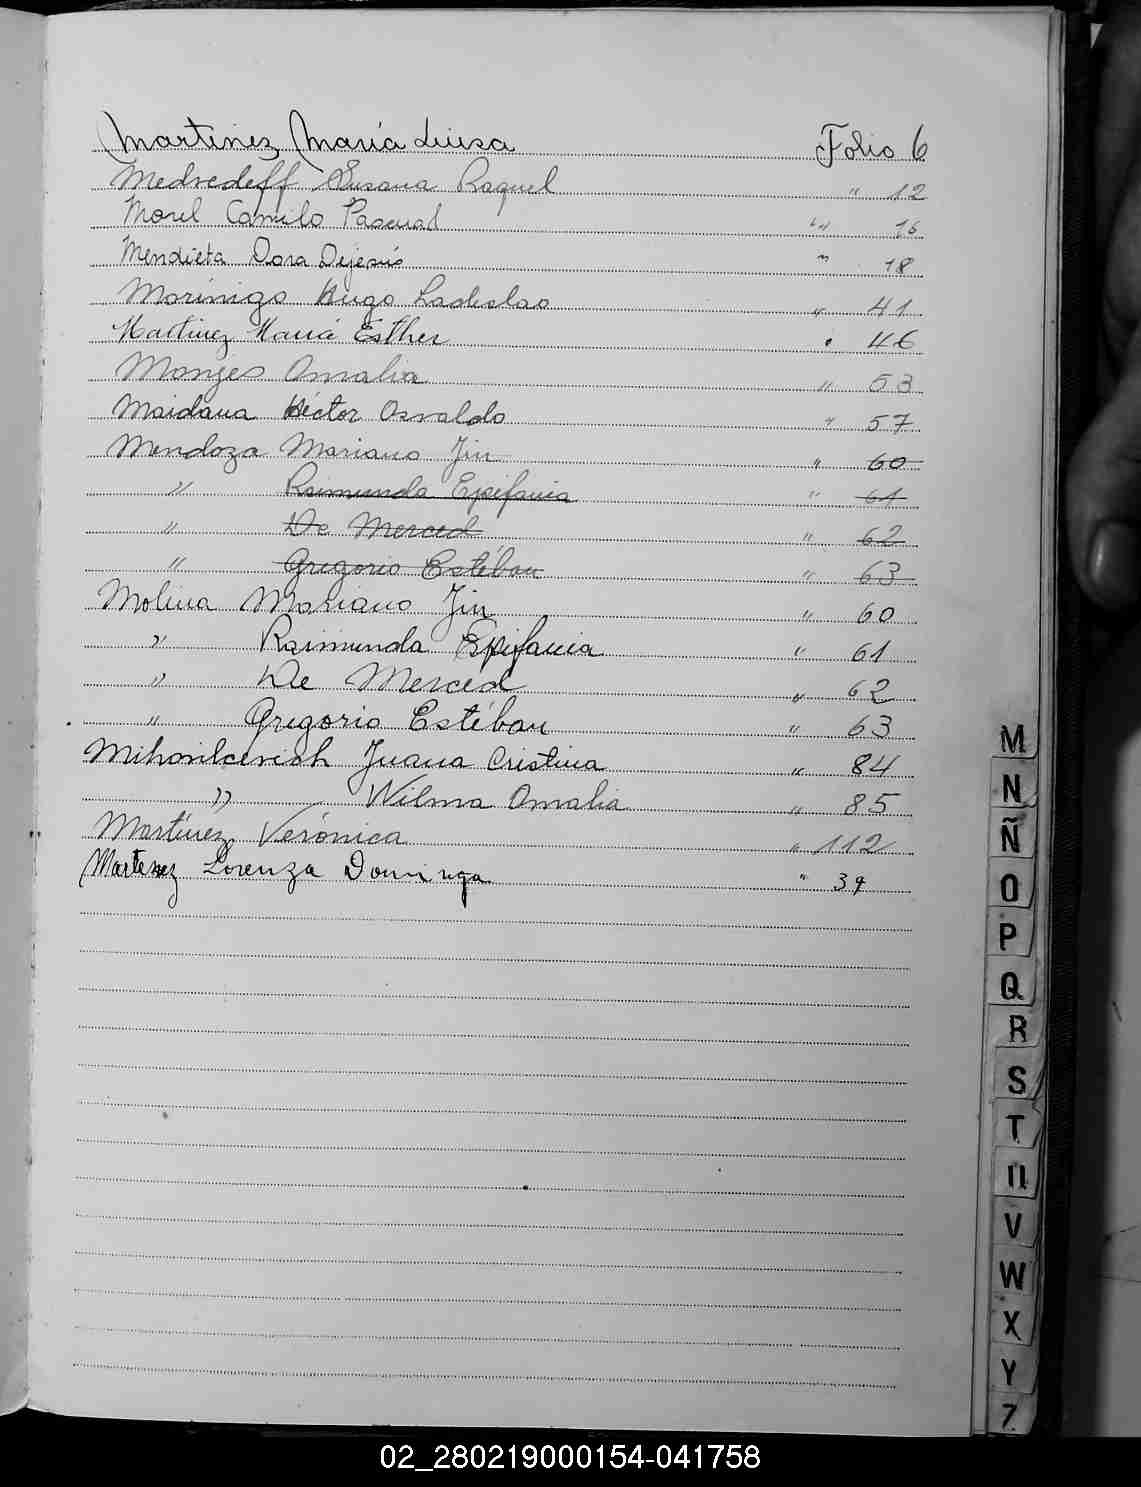 Martinez María Luisa Folio 6
Medvedeff Susana Raquel " 12
Morel Camilo Pascual " 16
Mendieta Dora Dejesús " 18
Morinigo Hugo Ladislao " 41
Martinez María Esther " 46
Monges Amalia " 53
Maidana Héctor Osvaldo " 57
Mendoza Mariano Jin " 60
" Raimunda Epifania " 61
" De Merced " 62
" Gregorio Estéban " 63
Molina Mariano Jin " 60
" Raimunda Epifania " 61
" De Merced " 62
" Gregorio Estéban " 63
Mihovilcevich Juana Cristina " 84
" Wilma Amalia " 85
Martínez Verónica " 112
Martinez Lorenza Dominga " 39
M
N
Ñ
O
P
Q
R
S
T
U
V
W
X
Y
Z
02_280219000154-041758